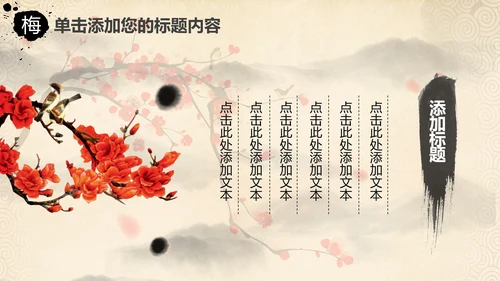 梅
单击添加您的标题内容
添加标题
点击此处添加文本
点击此处添加文本
点击此处添加文本
点击此处添加文本
点击此处添加文本
点击此处添加文本